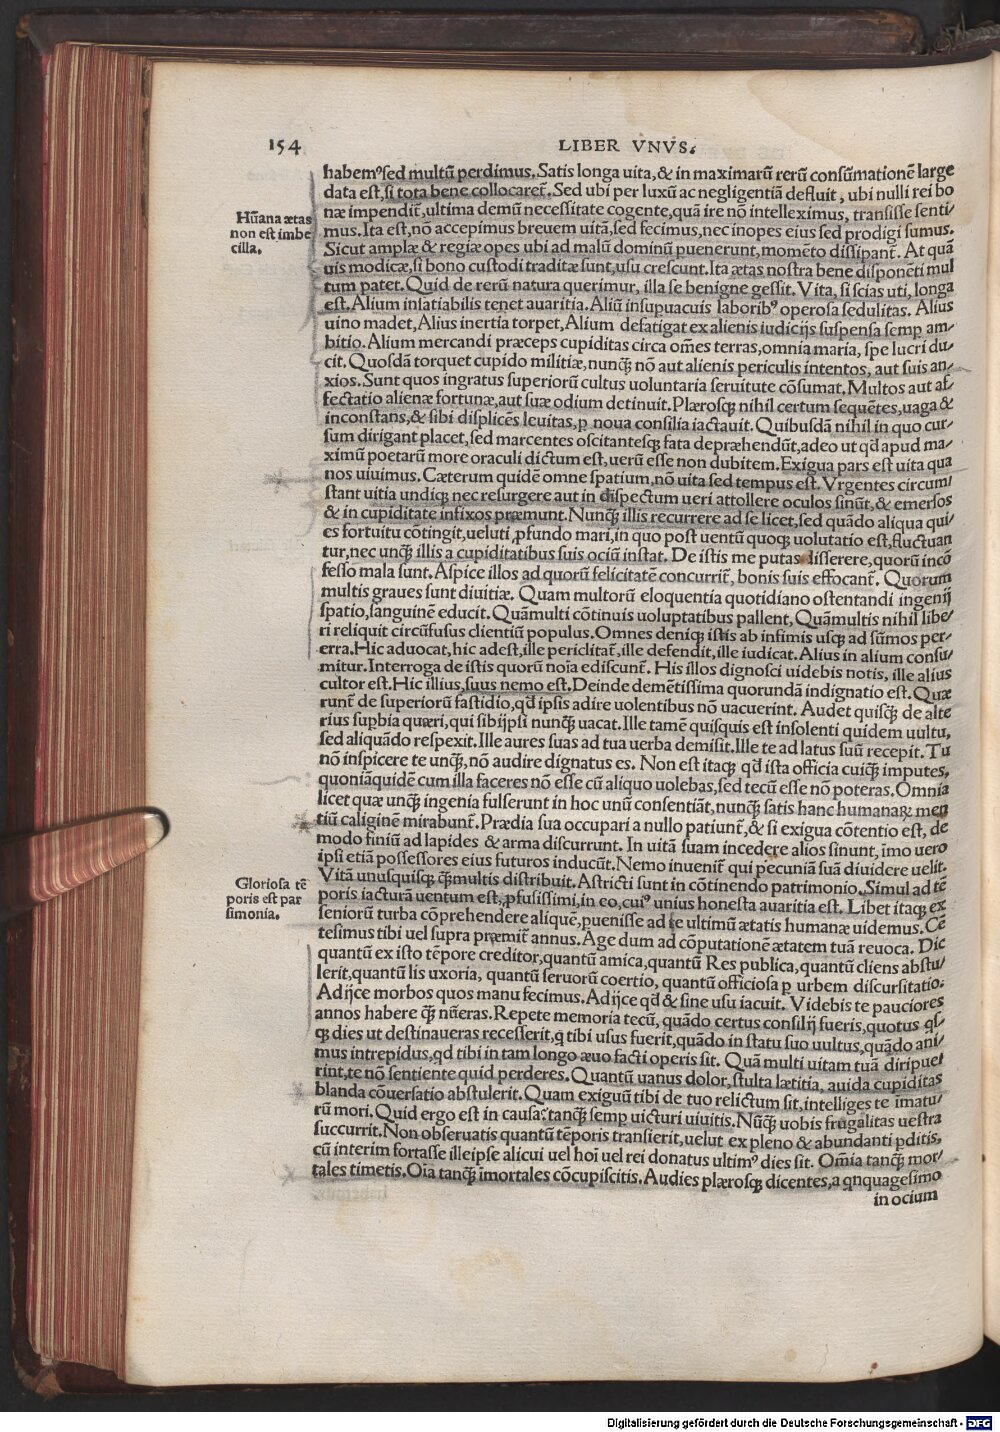 154
LIBER VNVS.
habem⁹sed multū perdimus. Satis longa uita, & in maximarū rerū consūmationē large
data est, si tota bene collocaret᷑. Sed ubi per luxū ac negligentiā defluit, ubi nulli rei bo
næ impendit᷑, ultima demū necessitate cogente, quā ire nō intelleximus, transisse senti-
mus. Ita est, nō accepimus breuem uitā, sed fecimus, nec inopes eius sed prodigi sumus.
Sicut amplæ & regiæ opes ubi ad malū dominū puenerunt, momēto dissipant᷑. At quā
uis modicæ, si bono custodi traditæ sunt, usu crescunt. Ita ætas nostra bene disponēti mul
tum patet. Quid de rerū natura querimur, illa se benigne gessit. Vita, si scias uti, longa
est. Alium insatiabilis tenet auaritia. Aliū insupuacuis laborib⁹ operosa sedulitas. Alius
uino madet, Alius inertia torpet, Alium defatigat ex alienis iudicijs suspensa semp am-
bitio. Alium mercandi præceps cupiditas circa om̄es terras, omnia maria, spe lucri du-
cit. Quosdā torquet cupido militiæ, nunqȝ nō aut alienis periculis intentos, aut suis an-
xios. Sunt quos ingratus superiorū cultus uoluntaria seruitute cōsumat. Multos aut af-
fectatio alienæ fortunæ, aut suæ odium detinuit. Plærosqȝ nihil certum sequētes, uaga &
inconstans, & sibi displicēs leuitas, p noua consilia iactauit. Quibusdā nihil in quo cur-
sum dirigant placet, sed marcentes oscitantesqȝ fata depræhendūt, adeo ut qd̄ apud ma-
ximū poetarū more oraculi dictum est, uerū esse non dubitem. Exigua pars est uita qua
nos uiuimus. Cæterum quidē omne spatium, nō uita sed tempus est. Vrgentes circum-
stant uitia undiqȝ nec resurgere aut in dispectum ueri attollere oculos sinūt, & emersos
& in cupiditate infixos præmunt. Nunqȝ illis recurrere ad se licet, sed quādo aliqua qui-
es fortuitu cōtingit, ueluti pfundo mari, in quo post uentū quoqȝ uolutatio est, fluctuan
tur, nec unqȝ illis a cupiditatibus suis ociū instat. De istis me putas disserere, quorū incō
fesso mala sunt. Aspice illos ad quorū felicitatē concurrit᷑, bonis suis effocant᷑. Quorum
multis graues sunt diuitiæ. Quam multorū eloquentia quotidiano ostentandi ingenij
spatio, sanguinē educit. Quāmulti cōtinuis uoluptatibus pallent, Quāmultis nihil libe-
ri reliquit circūfusus clientiū populus. Omnes deniqȝ istis ab infimis usqȝ ad sūmos per-
erra. Hic aduocat, hic adest, ille periclitat᷑, ille defendit, ille iudicat. Alius in alium consu-
mitur. Interroga de istis quorū noīa ediscunt᷑. His illos dignosci uidebis notis, ille alius
cultor est. Hic illius, suus nemo est. Deinde demētissima quorundā indignatio est. Quæ
runt᷑ de superiorū fastidio, qd̄ ipsis adire uolentibus nō uacuerint. Audet quisqȝ de alte
rius supbia quæri, qui sibijpsi nunqȝ uacat. Ille tamē quisquis est insolenti quidem uultu,
sed aliquādo respexit. Ille aures suas ad tua uerba demisit. Ille te ad latus suū recepit. Tu
nō inspicere te unqȝ, nō audire dignatus es. Non est itaqȝ qd̄ ista officia cuiqȝ imputes,
quoniāquidē cum illa faceres nō esse cū aliquo uolebas, sed tecū esse nō poteras. Omnia
licet quæ unqȝ ingenia fulserunt in hoc unū consentiāt, nunqȝ satis hanc humanaꝝ men
tiū caliginē mirabunt᷑. Prædia sua occupari a nullo patiunt᷑, & si exigua cōtentio est, de
modo finiū ad lapides & arma discurrunt. In uitā suam incedere alios sinunt, īmo uero
ipsi etiā possessores eius futuros inducūt. Nemo inuenit᷑ qui pecuniā suā diuidere uelit.
Vitā unusquisqȝ qȝmultis distribuit. Astricti sunt in cōtinendo patrimonio. Simul ad tē
poris iacturā uentum est, pfusissimi, in eo, cui⁹ unius honesta auaritia est. Libet itaqȝ ex
seniorū turba cōprehendere aliquē, puenisse ad te ultimū ætatis humanæ uidemus. Cē
tesimus tibi uel supra præmit᷑ annus. Age dum ad cōputationē ætatem tuā reuoca. Dic
quantū ex isto tēpore creditor, quantū amica, quantū Res publica, quantū cliens abstu-
lerit, quantū lis uxoria, quantū seruorū coertio, quantū officiosa p urbem discursitatio.
Adijce morbos quos manu fecimus. Adijce qd̄ & sine usu iacuit. Videbis te pauciores
annos habere qȝ nūeras. Repete memoria tecū, quādo certus consilij fueris, quotus qs-
qȝ dies ut destinaueras recesserit, q tibi usus fuerit, quādo in statu suo uultus, quādo ani-
mus intrepidus, qd tibi in tam longo æuo facti operis sit. Quā multi uitam tuā diripue-
rint, te nō sentiente quid perderes. Quantū uanus dolor, stulta lætitia, auida cupiditas
blanda cōuersatio abstulerit. Quam exiguū tibi de tuo relictum sit, intelliges te īmatu-
rū mori. Quid ergo est in causa? tanqȝ semp uicturi uiuitis. Nūqȝ uobis frugalitas uestra
succurrit. Non obseruatis quantū tēporis transierit, uelut ex pleno & abundanti pditis,
cū interim fortasse illeipse alicui uel hoī uel rei donatus ultim⁹ dies sit. Om̄ia tanqȝ mor-
tales timetis. Oīa tanqȝ īmortales cōcupiscitis. Audies plærosqȝ dicentes, a qnquagesimo
in ocium
Hūana ætas
non est imbe
cilla.
Gloriosa tē
poris est par
simonia.
Digitalisierung gefördert durch die Deutsche Forschungsgemeinschaft - DFG